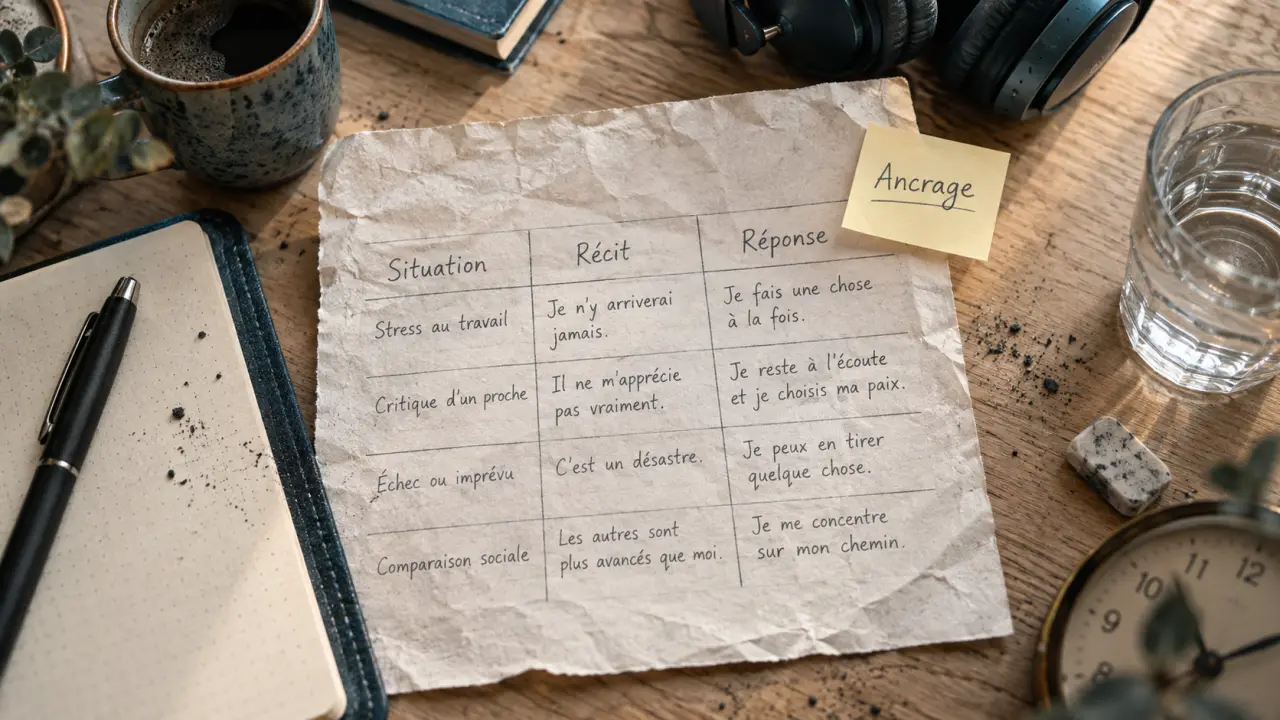 Ancrage
Situation
Récit
Réponse
Stress au travail
Je n'y arriverai
jamais.
Je fais une chose
à la fois.
Critique d'un proche
Il ne m'apprécie
pas vraiment.
Je reste à l'écoute
et je choisis ma paix.
Échec ou imprévu
C'est un désastre.
Je peux en tirer
quelque chose.
Comparaison sociale
Les autres sont
plus avancés que moi.
Je me concentre
sur mon chemin.
11
12
10
9
8